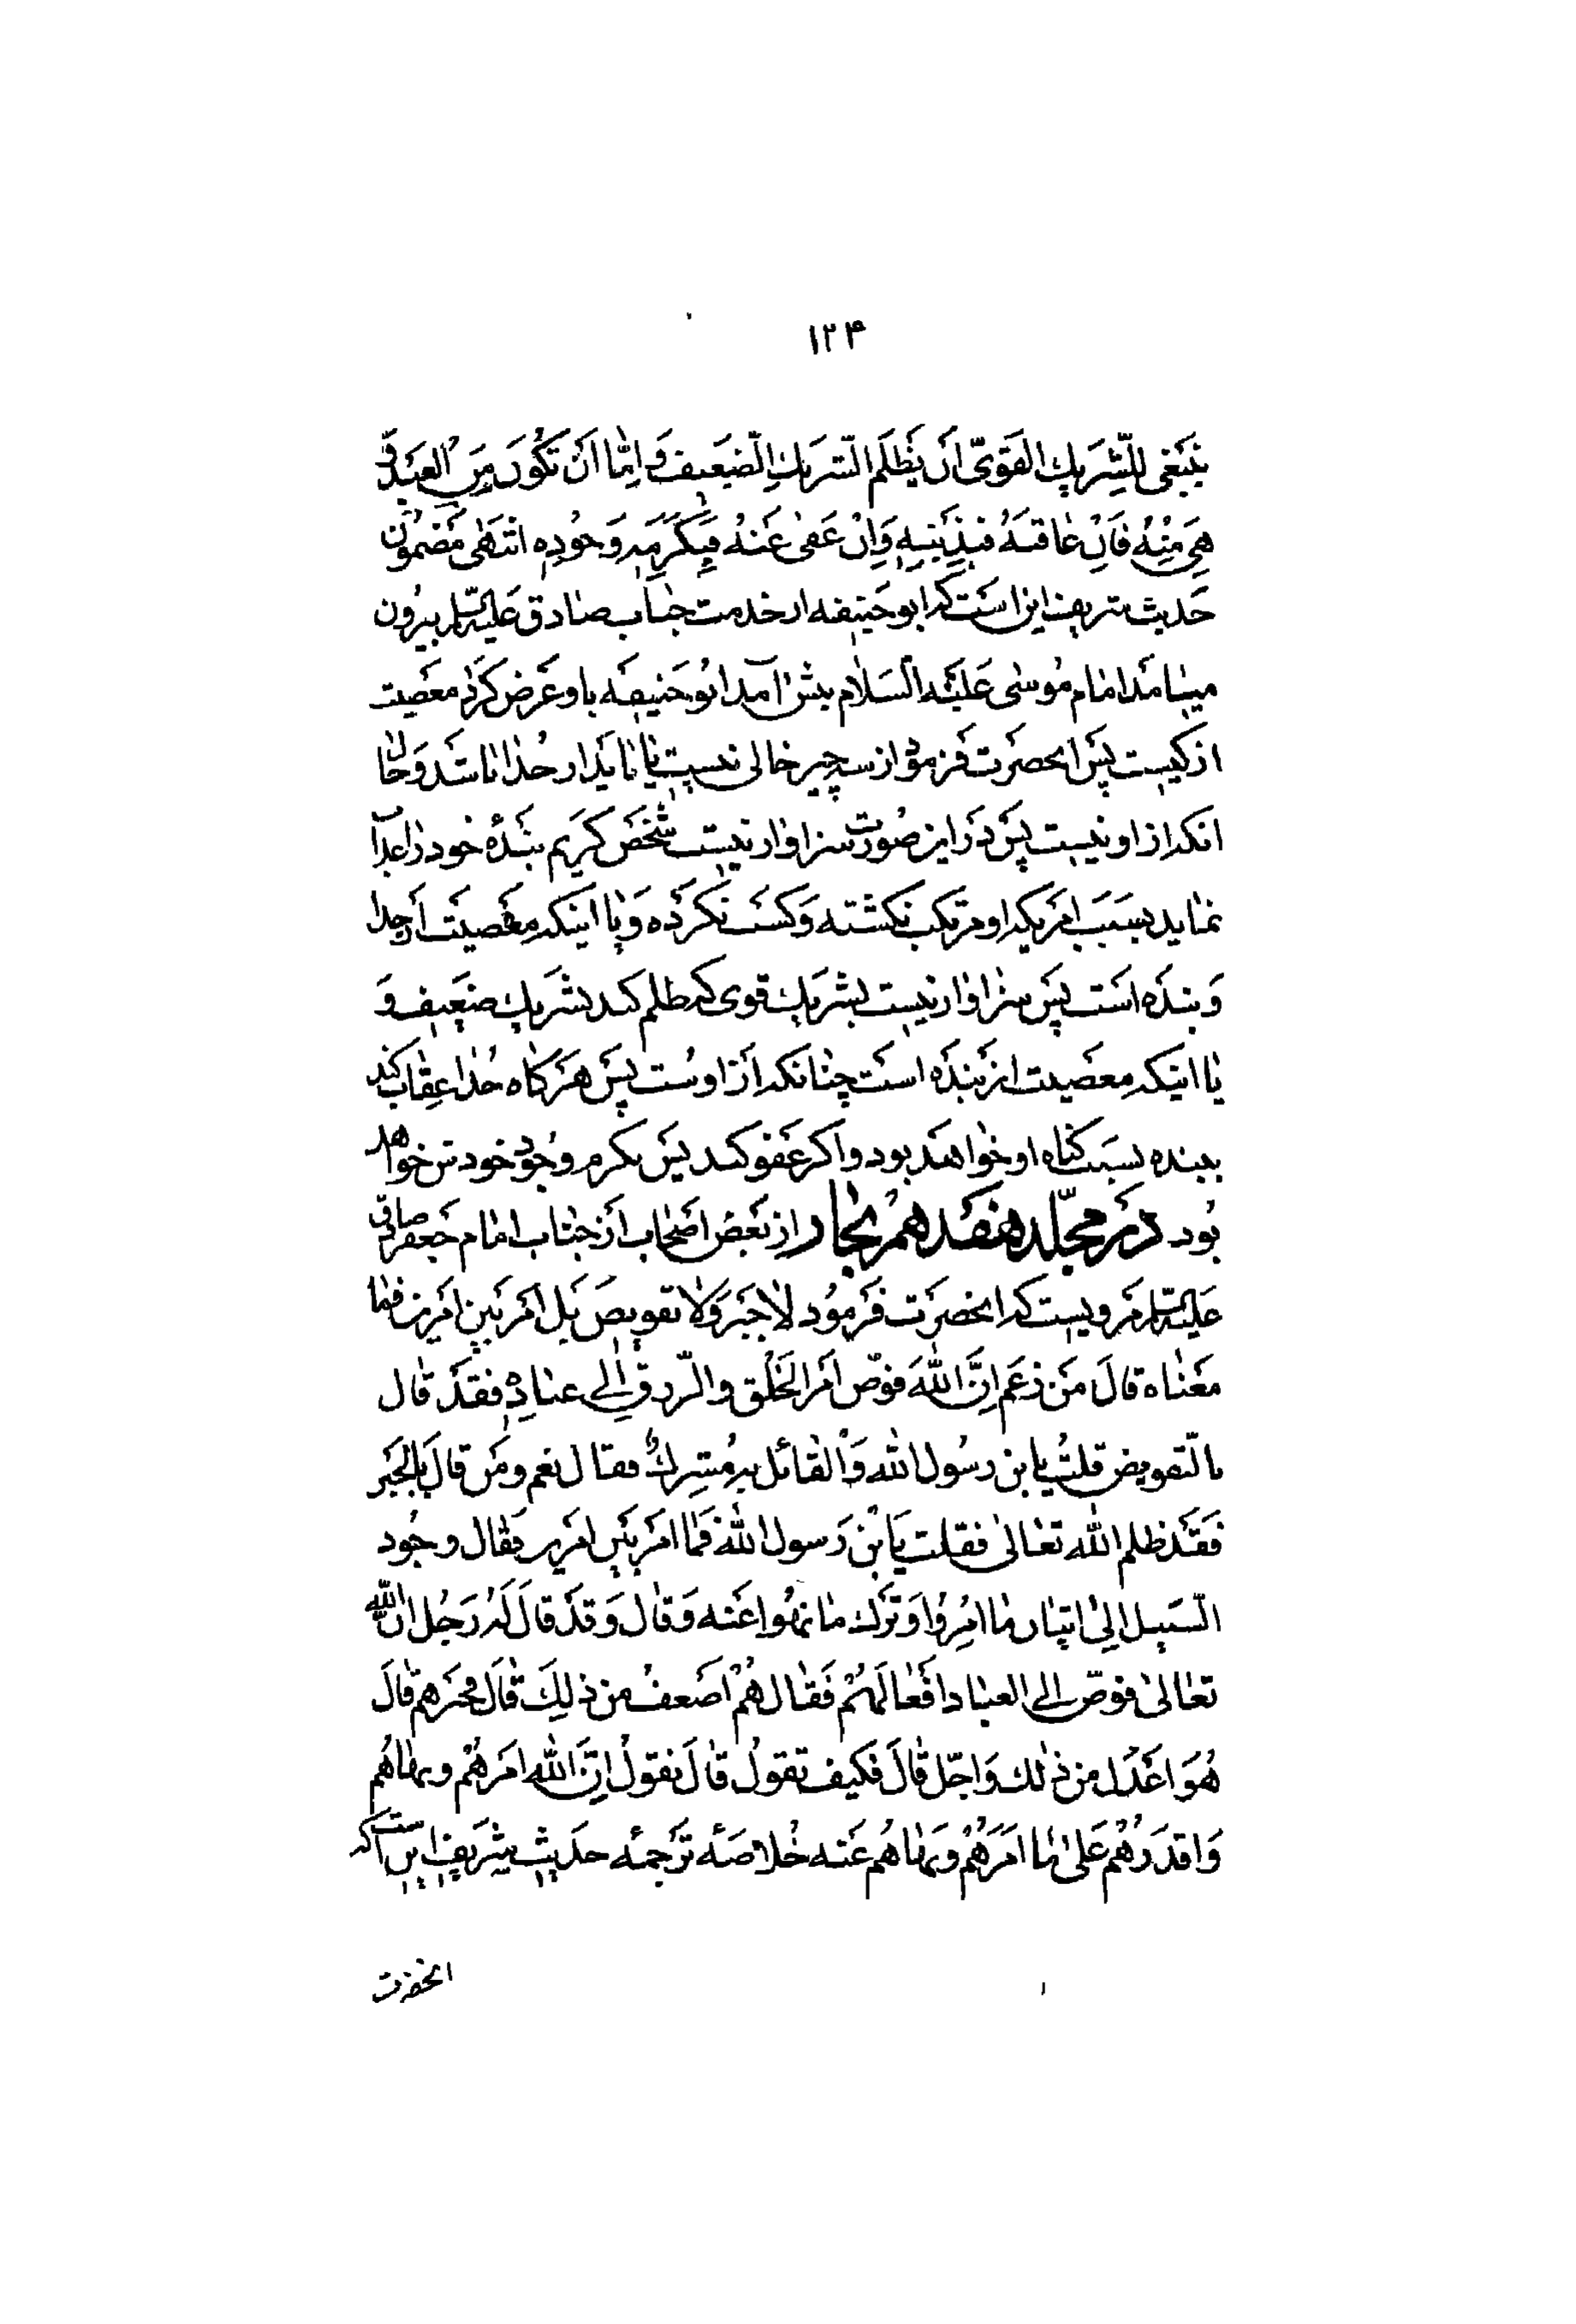 ۱۲۴
ينبغى للشّريك القوىّ ان يظلم الشّريك الضّعيف و امّا ان تكون من العبد و
هى منه فان عاقبه فبذنبه و ان عفى عنه فبكرمه و جوده انتهى مضمون
حديث شريف اين است كه ابو حنيفه از خدمت جناب صادق عليه السّلم بيرون
ميامد امام موسى عليه السّلام پيش آمد ابو حنيفه باو عرض كرد معصيت
از كيست پس انحضرت فرمود از سه چيز خالى نيست يا بايد از خدا باشد و حال
انكه از او نيست پس در اين صورت سزاوار نيست شخص كريم بنده خود را عذاب
نمايد بسبب امريكه او مرتكب نگشته و كسب نكرده و يا اينكه معصيت از خدا
و بنده است پس سزاوار نيست بشريك قوى كه ظلم كند بشريك ضعيف و
يا اينكه معصيت از بنده است چنانكه از اوست پس هرگاه خدا عقاب كند
ببنده بسبب گناه او خواهد بود و اگر عفو كند پس بكرم و جود خودش خواهد
بود در مجلّد هفدهم بحار از بعض اصحاب از جناب امام جعفر صادق
عليه السّلم مرويست كه انحضرت فرمود لا جبر و لا تفويض بل امر بين امرين فما
معناه قال من زعم انّ اللّه فوّض امر الخلق و الرّزق الى عباده فقد قال
بالتّفويض قلت يابن رسول اللّه و القائل به مشرك فقال نعم و من قال بالجبر
فقد ظلم اللّه تعالى فقلت يابن رسول اللّه فما امر بين امرين فقال وجود
السّبيل الى اتيان ما امروا و ترك ما نهوا عنه و قال و قد قال له رجل انّ اللّه
تعالى فوّض الى العباد افعالهم فقال هم اضعف من ذلك قال فجبرهم قال
هو اعدل من ذلك و اجلّ قال فكيف تقول قال نقول انّ اللّه امرهم و نهاهم
و اقدرهم على ما امرهم و نهاهم عنه خلاصه ترجمه حديث شريف اين است كه
انحضرت